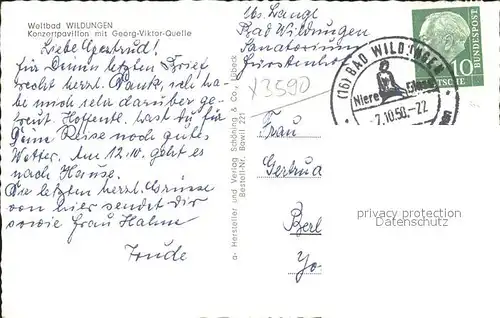 Weltbad WILDUNGEN
Konzertpavillon mit Georg-Viktor-Quelle
Liebe Gertrud!
Für Deinen letzten Brief
recht herzl. Dank, ich ha-
be mich sehr darüber ge-
freut. Hoffentl. hast Du für
Deine Reise noch gutes
Wetter. Am 12.10. geht es
nach Hause.
Die letzten herzl. Grüsse
von hier sendet Dir
sowie Frau Hahne
Trude
a- Hersteller und Verlag Schöning & Co., Lübeck
Bestell-Nr. Bawil 221
Abs. Lange
Bad Wildungen
Sanatorium
Fürstenhof
x3590
Frau
Gertrud
Berl
(16) BAD WILDUNGEN
Niere
-7.10.58.-22
10
DEUTSCHE
BUNDESPOST
privacy protection
Datenschutz